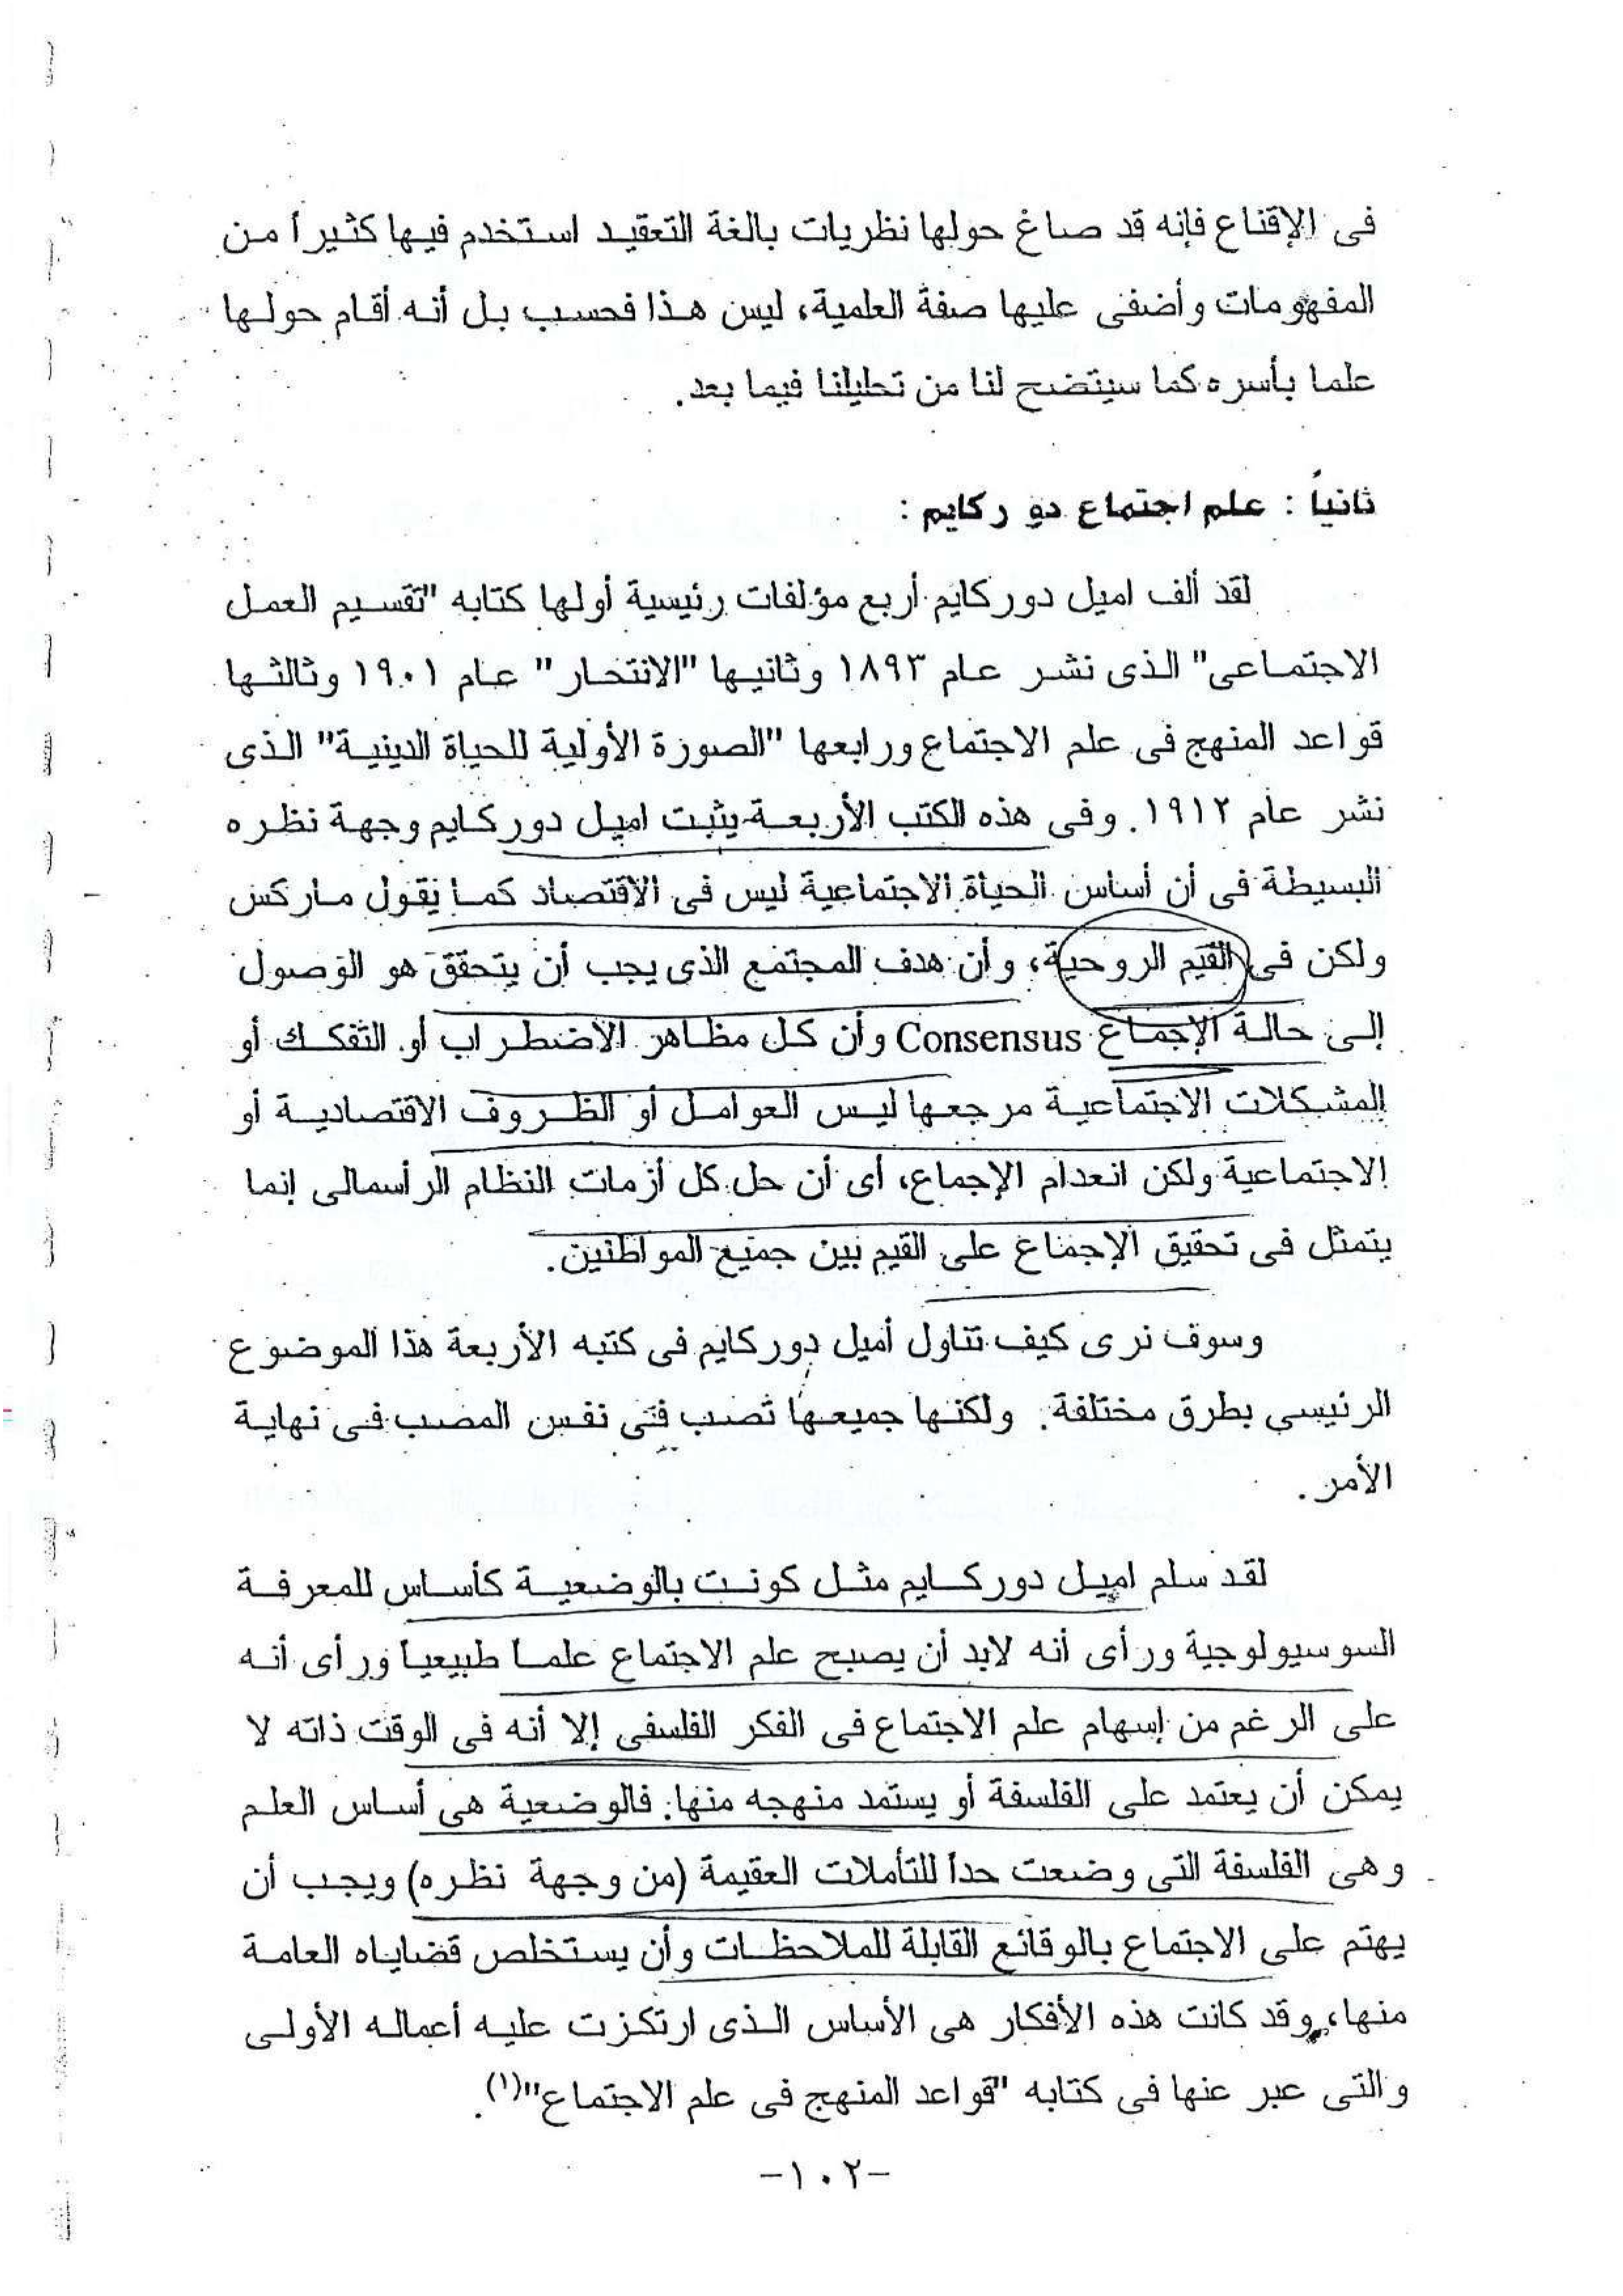 فى الإقناع فإنه قد صاغ حولها نظريات بالغة التعقيد استخدم فيها كثيراً من
المفهومات وأضفى عليها صفة العلمية، ليس هذا فحسب بل أنه أقام حولها
علما بأسره كما سيتضح لنا من تحليلنا فيما بعد.
ثانياً : علم اجتماع دور كايم :
لقد ألف اميل دور كايم أربع مؤلفات رئيسية أولها كتابه "تقسيم العمل
الاجتماعى" الذى نشر عام ١٨٩٣ وثانيها "الانتحار" عام ١٩٠١ وثالثها
قواعد المنهج فى علم الاجتماع ورابعها "الصورة الأولية للحياة الدينية" الذى
نشر عام ١٩١٢. وفى هذه الكتب الأربعة يثبت اميل دور كايم وجهة نظره
البسيطة فى أن أساس الحياة الاجتماعية ليس فى الاقتصاد كما يقول ماركس
ولكن فى القيم الروحية، وأن هدف المجتمع الذى يجب أن يتحقق هو الوصول
إلى حالة الإجماع Consensus وأن كل مظاهر الاضطراب أو التفكك أو
المشكلات الاجتماعية مرجعها ليس العوامل أو الظروف الاقتصادية أو
الاجتماعية ولكن انعدام الإجماع، أى أن حل كل أزمات النظام الرأسمالى إنما
يتمثل فى تحقيق الإجماع على القيم بين جميع المواطنين.
وسوف نرى كيف تناول أميل دور كايم فى كتبه الأربعة هذا الموضوع
الرئيسى بطرق مختلفة. ولكنها جميعها تصب فى نفس المصب فى نهاية
الأمر.
لقد سلم اميل دور كايم مثل كونت بالوضعية كأساس للمعرفة
السوسيولوجية ورأى أنه لابد أن يصبح علم الاجتماع علما طبيعيا ورأى أنه
على الرغم من إسهام علم الاجتماع فى الفكر الفلسفى إلا أنه فى الوقت ذاته لا
يمكن أن يعتمد على الفلسفة أو يستمد منهجه منها. فالوضعية هى أساس العلم
وهى الفلسفة التى وضعت حداً للتأملات العقيمة (من وجهة نظره) ويجب أن
يهتم على الاجتماع بالوقائع القابلة للملاحظات وأن يستخلص قضاياه العامة
منها، وقد كانت هذه الأفكار هى الأساس الذى ارتكزت عليه أعماله الأولى
والتى عبر عنها فى كتابه "قواعد المنهج فى علم الاجتماع"(١).
-١٠٢-